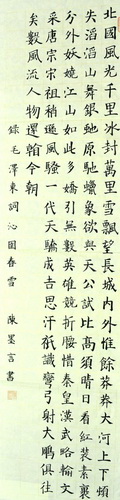 北國風光千里冰封萬里雪飄望長城內外惟餘莽莽大河上下頓
失滔滔山舞銀蛇原馳蠟象欲與天公試比高須晴日看紅裝素裹
分外妖嬈江山如此多嬌引無數英雄競折腰惜秦皇漢武略輸文
采唐宗宋祖稍遜風騷一代天驕成吉思汗祇識彎弓射大鵰俱往
矣數風流人物還看今朝
錄毛澤東詞沁園春雪 陳墨言書